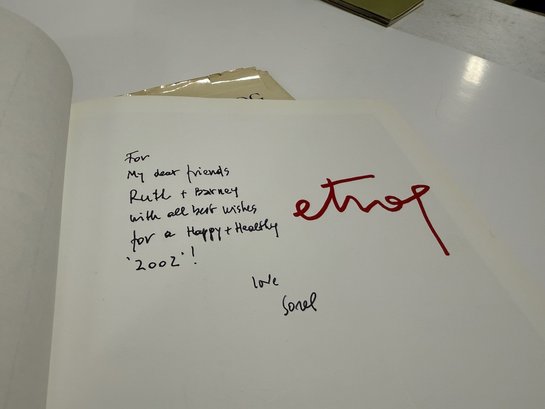 For
My dear friends
Ruth + Barney
with all best wishes
for a Happy + Healthy
'2002'!
etrog
love
Sorel